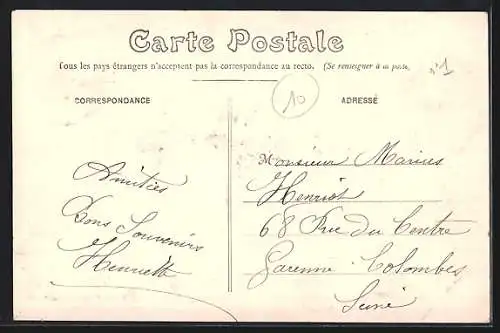 Carte Postale
Tous les pays étrangers n'acceptent pas la correspondance au recto. (Se renseigner à la poste)
n°1
10
CORRESPONDANCE
ADRESSE
Amitiés
Bons Souvenirs
Henriette
Monsieur Marius
Henriot
68 Rue du Centre
Garenne Colombes
Seine